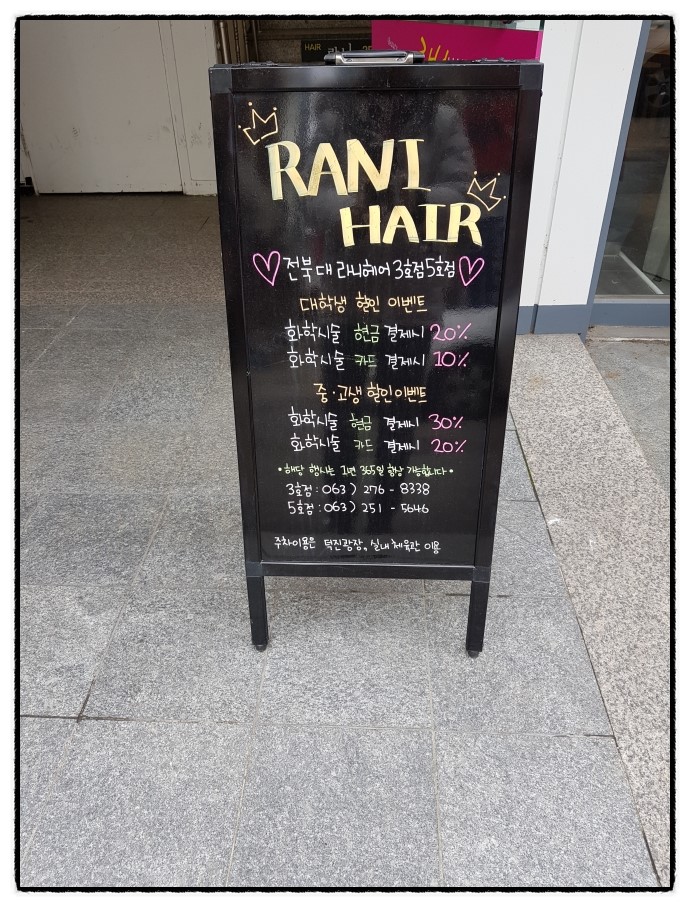 HAIR
RANI
HAIR
전북대 라니헤어 3호점 5호점
대학생 할인 이벤트
화학시술 현금 결제시 20%
화학시술 카드 결제시 10%
중·고생 할인 이벤트
화학시술 현금 결제시 30%
화학시술 카드 결제시 20%
• 해당 행사는 1년 365일 항상 가능합니다 •
3호점 : 063) 276 - 8338
5호점 : 063) 251 - 5646
주차이용은 덕진광장, 실내체육관 이용